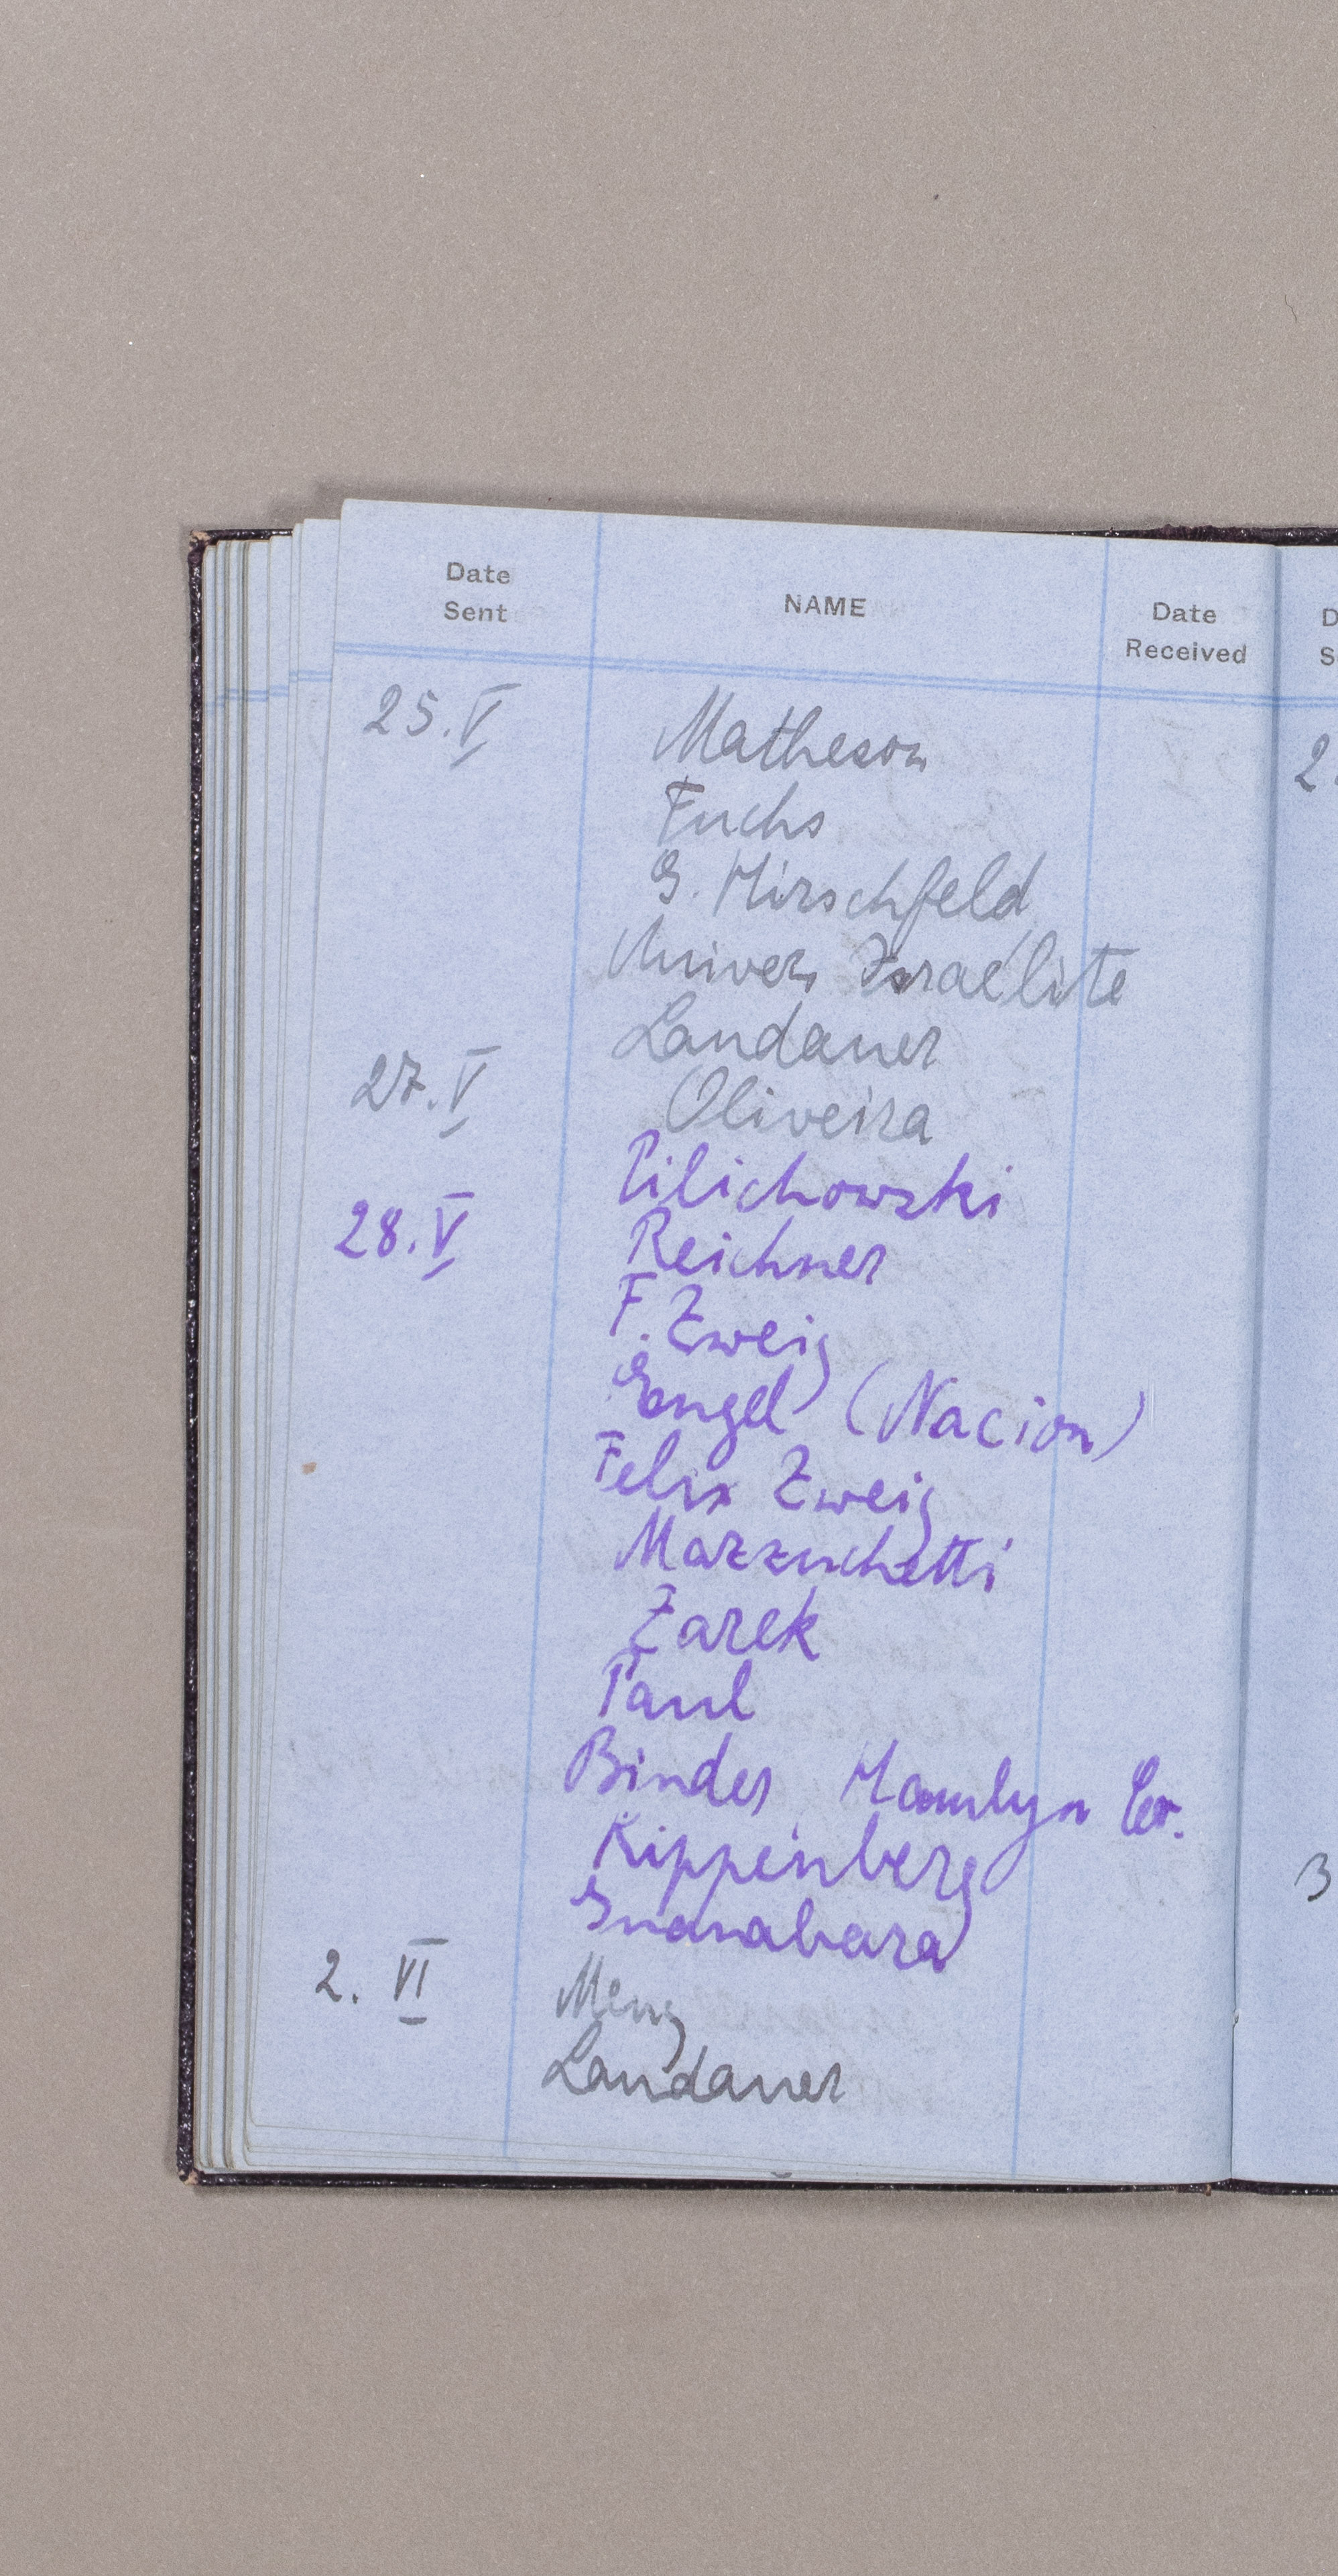 Date Sent NAME Date Received
25.V Matheson
Fuchs
G. Hirschfeld
Univers Israélite
Landauer
27.V Oliveira
Pilichowski
28.V Reichner
F. Zweig
Engel (Nacion)
Felix Zweig
Mazzuchetti
Zarek
Paul
Binder Hamlyn Co.
Kippenberg
Guanabara
2. VI Meng
Landauer